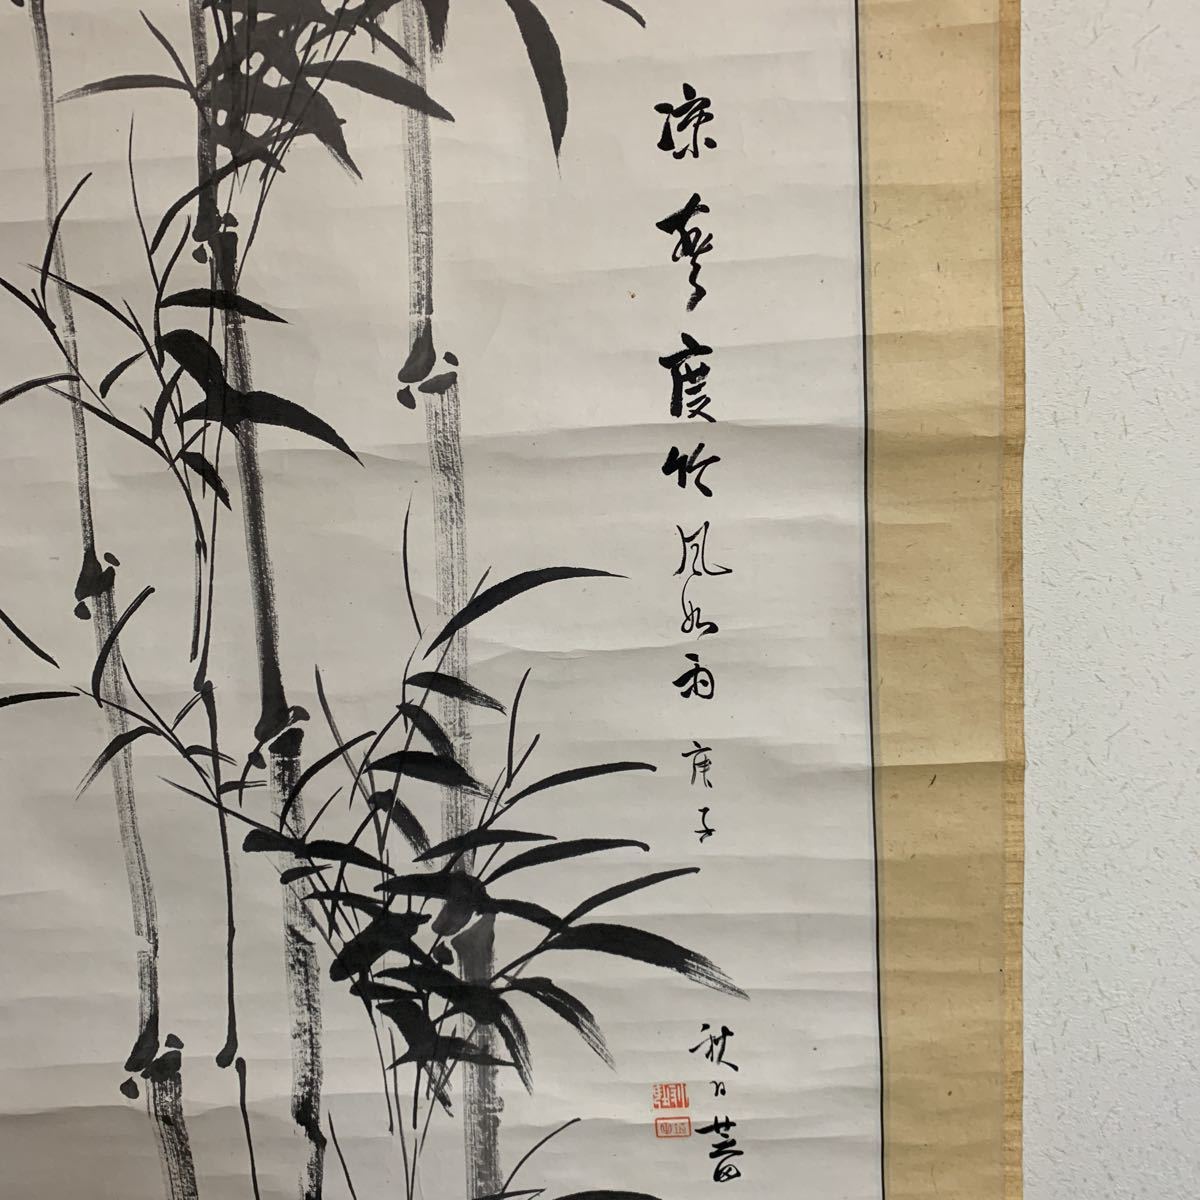 涼声度竹風如雨
庚子
秋日